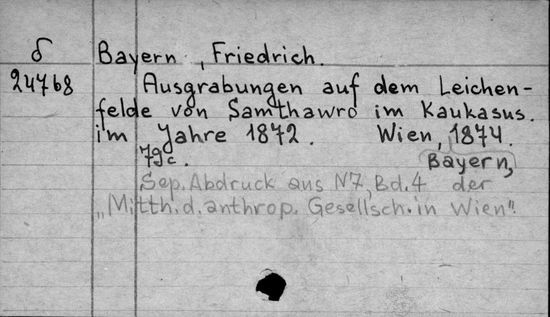 δ
24768
Bayern, Friedrich.
Ausgrabungen auf dem Leichen-
felde von Samthawro im Kaukasus.
im Jahre 1872. Wien, 1874.
79c. Bayern,
Sep. Abdruck aus N7, Bd. 4 der
„Mitth. d. anthrop. Gesellsch. in Wien"